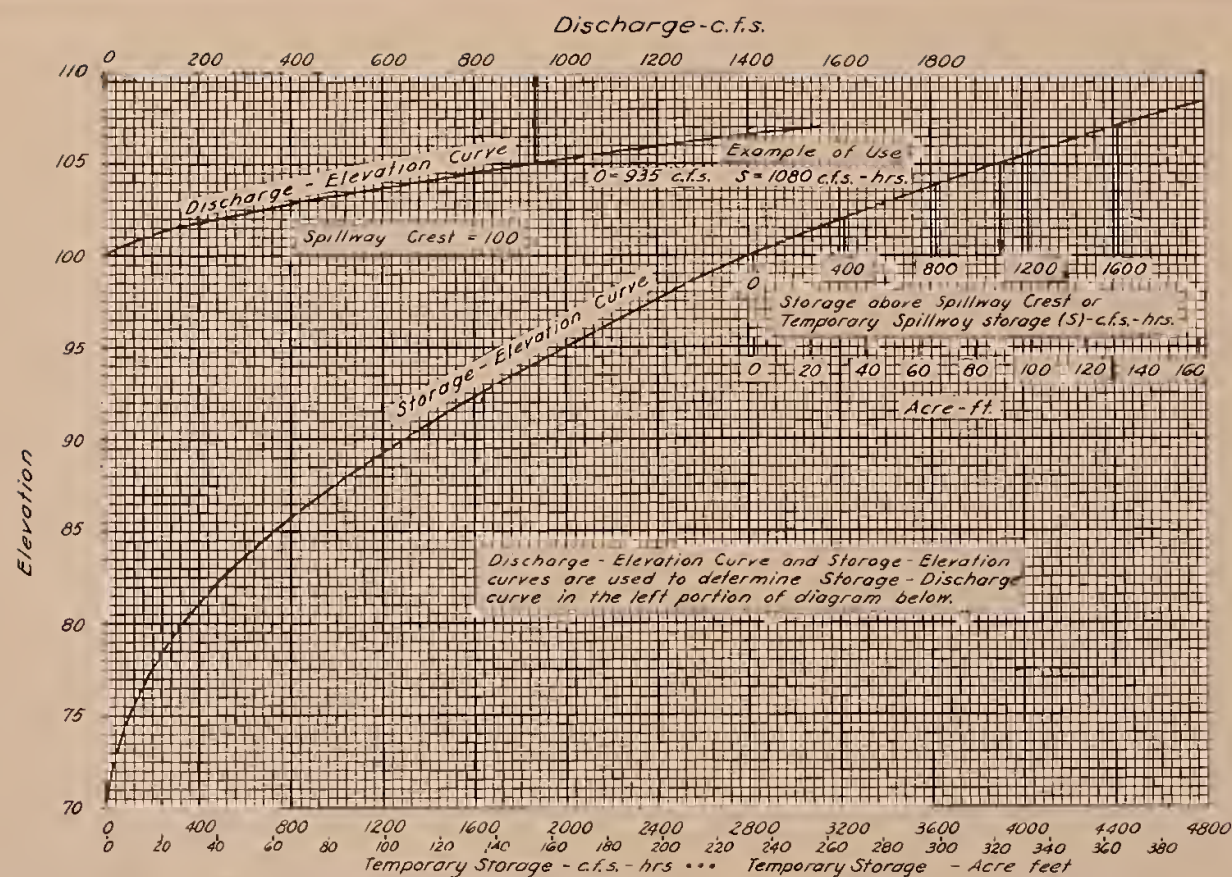 Discharge-c.f.s.
0 200 400 600 800 1000 1200 1400 1600 1800
110
105
100
95
90
85
80
75
70
Elevation
Discharge - Elevation Curve
Example of Use
O=935 c.f.s. S=1080 c.f.s.-hrs.
Spillway Crest = 100
0 400 800 1200 1600
Storage above Spillway Crest or
Temporary Spillway storage (S)-c.f.s.-hrs.
0 20 40 60 80 100 120 140 160
Acre-ft.
Storage-Elevation Curve
Discharge - Elevation Curve and Storage-Elevation
curves are used to determine Storage-Discharge
curve in the left portion of diagram below.
0 400 800 1200 1600 2000 2400 2800 3200 3600 4000 4400 4800
0 20 40 60 80 100 120 140 160 180 200 220 240 260 280 300 320 340 360 380
Temporary Storage - c.f.s.-hrs ••• Temporary Storage - Acre feet